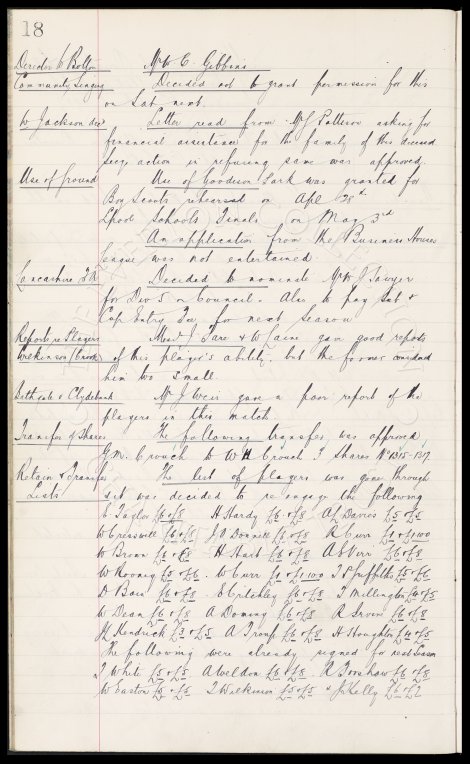 18
Director to Bolton Mr W. C. Gibbins
Community Singing Decided not to grant permission for this
on Sat next.
W Jackson decd Letter read from Mrs Patterson asking for
financial assistance for the family of this deceased
secy action in refusing same was approved.
Use of Ground Use of Goodison Park was granted for
Boy Scouts rehearsal on Apl 25th
Lpool Schools Finals on May 3rd
An application from the Business Houses
League was not entertained.
Lancashire F.A. Decided to nominate Mr W J Sawyer
for Div 5 on Council. Also to pay Sub &
Cup Entry Fee for next season
Reports re Players Messrs J Fare & W Caine gave good reports
Wilkinson (Crook) of this player's ability, but the former considered
him too small.
Bethgate v Clydebank Mr J Weir gave a poor report of the
players in this match.
Transfer of Shares The following transfer was approved,
G. M. Crouch to W H Crouch 3 Shares No 1315-1317.
Retain & Transfer The list of players was gone through
Lists & it was decided to re-engage the following
E Taylor £6 & £8 H Hardy £6 & £8 A L Davies £5 & £5
W Cresswell £6 & £8 J O Donnell £6 & £8 R Curr £1 & £1.10.0
W Brown £6 & £8 H Hart £6 & £8 A E Virr £6 & £8
W Rooney £5 & £6 W Curr £1 & £1.10.0 T P Griffiths £5 & £6
D Bain £6 & £8 E Critchley £6 & £8 T Millington £4 & £5
W Dean £6 & £8 A Dominy £6 & £8 R Irvine £6 & £8
J Kendrick £5 & £5 A Troup £6 & £8 H Houghton £4 & £5
The following were already signed for next season
T White £5 & £5 A Weldon £6 & £8 R Forshaw £6 & £8
W Easton £6 & £6 J Wilkinson £5 & £5 & J Kelly £6 & £7